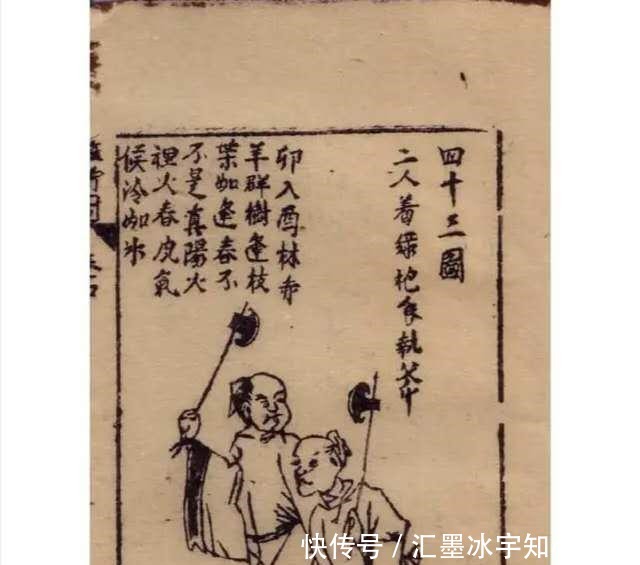 四十三圖
二人着綠袍各執斧
卯入酉林赤
羊群樹逢枝
葉如逢春不
不是真陽火
裡火春皮氣
候冷如冰
快传号 / 汇墨冰宇知